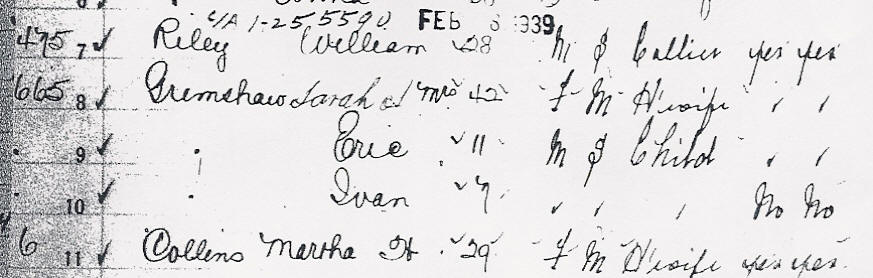 C/A 1-255590 FEB 8 1939
475 7 ✓ Riley William ✓ 28 M S Collier yes yes
665 8 ✓ Grimshaw Sarah J Mrs 42 F M H'wife " "
" 9 ✓ " Eric ✓ 11 M S Child " "
" 10 " Ivan ✓ 7 " " " No No
6 11 ✓ Collins Martha H ✓ 29 F M H'wife yes yes